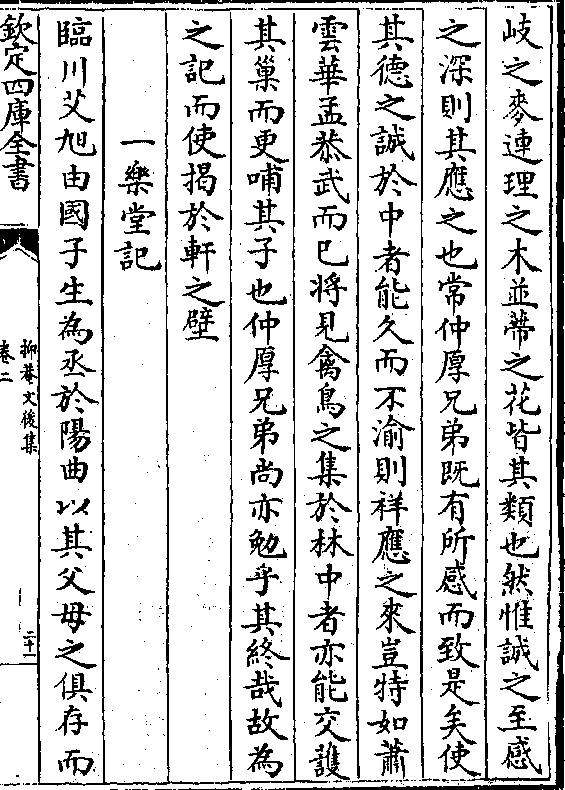 岐之麥連理之木並蒂之花皆其類也然惟誠之至感
之深則其應之也常仲厚兄弟既有所感而致是矣使
其德之誠於中者能久而不渝則祥應之來豈特如蕭
雲華孟恭武而已將見禽鳥之集於林中者亦能交護
其巢而更哺其子也仲厚兄弟尚亦勉乎其終哉故為
之記而使揭於軒之壁
一樂堂記
臨川艾旭由國子生為丞於陽曲以其父母之俱存而
欽定四庫全書
抑菴文後集
卷二
二十一